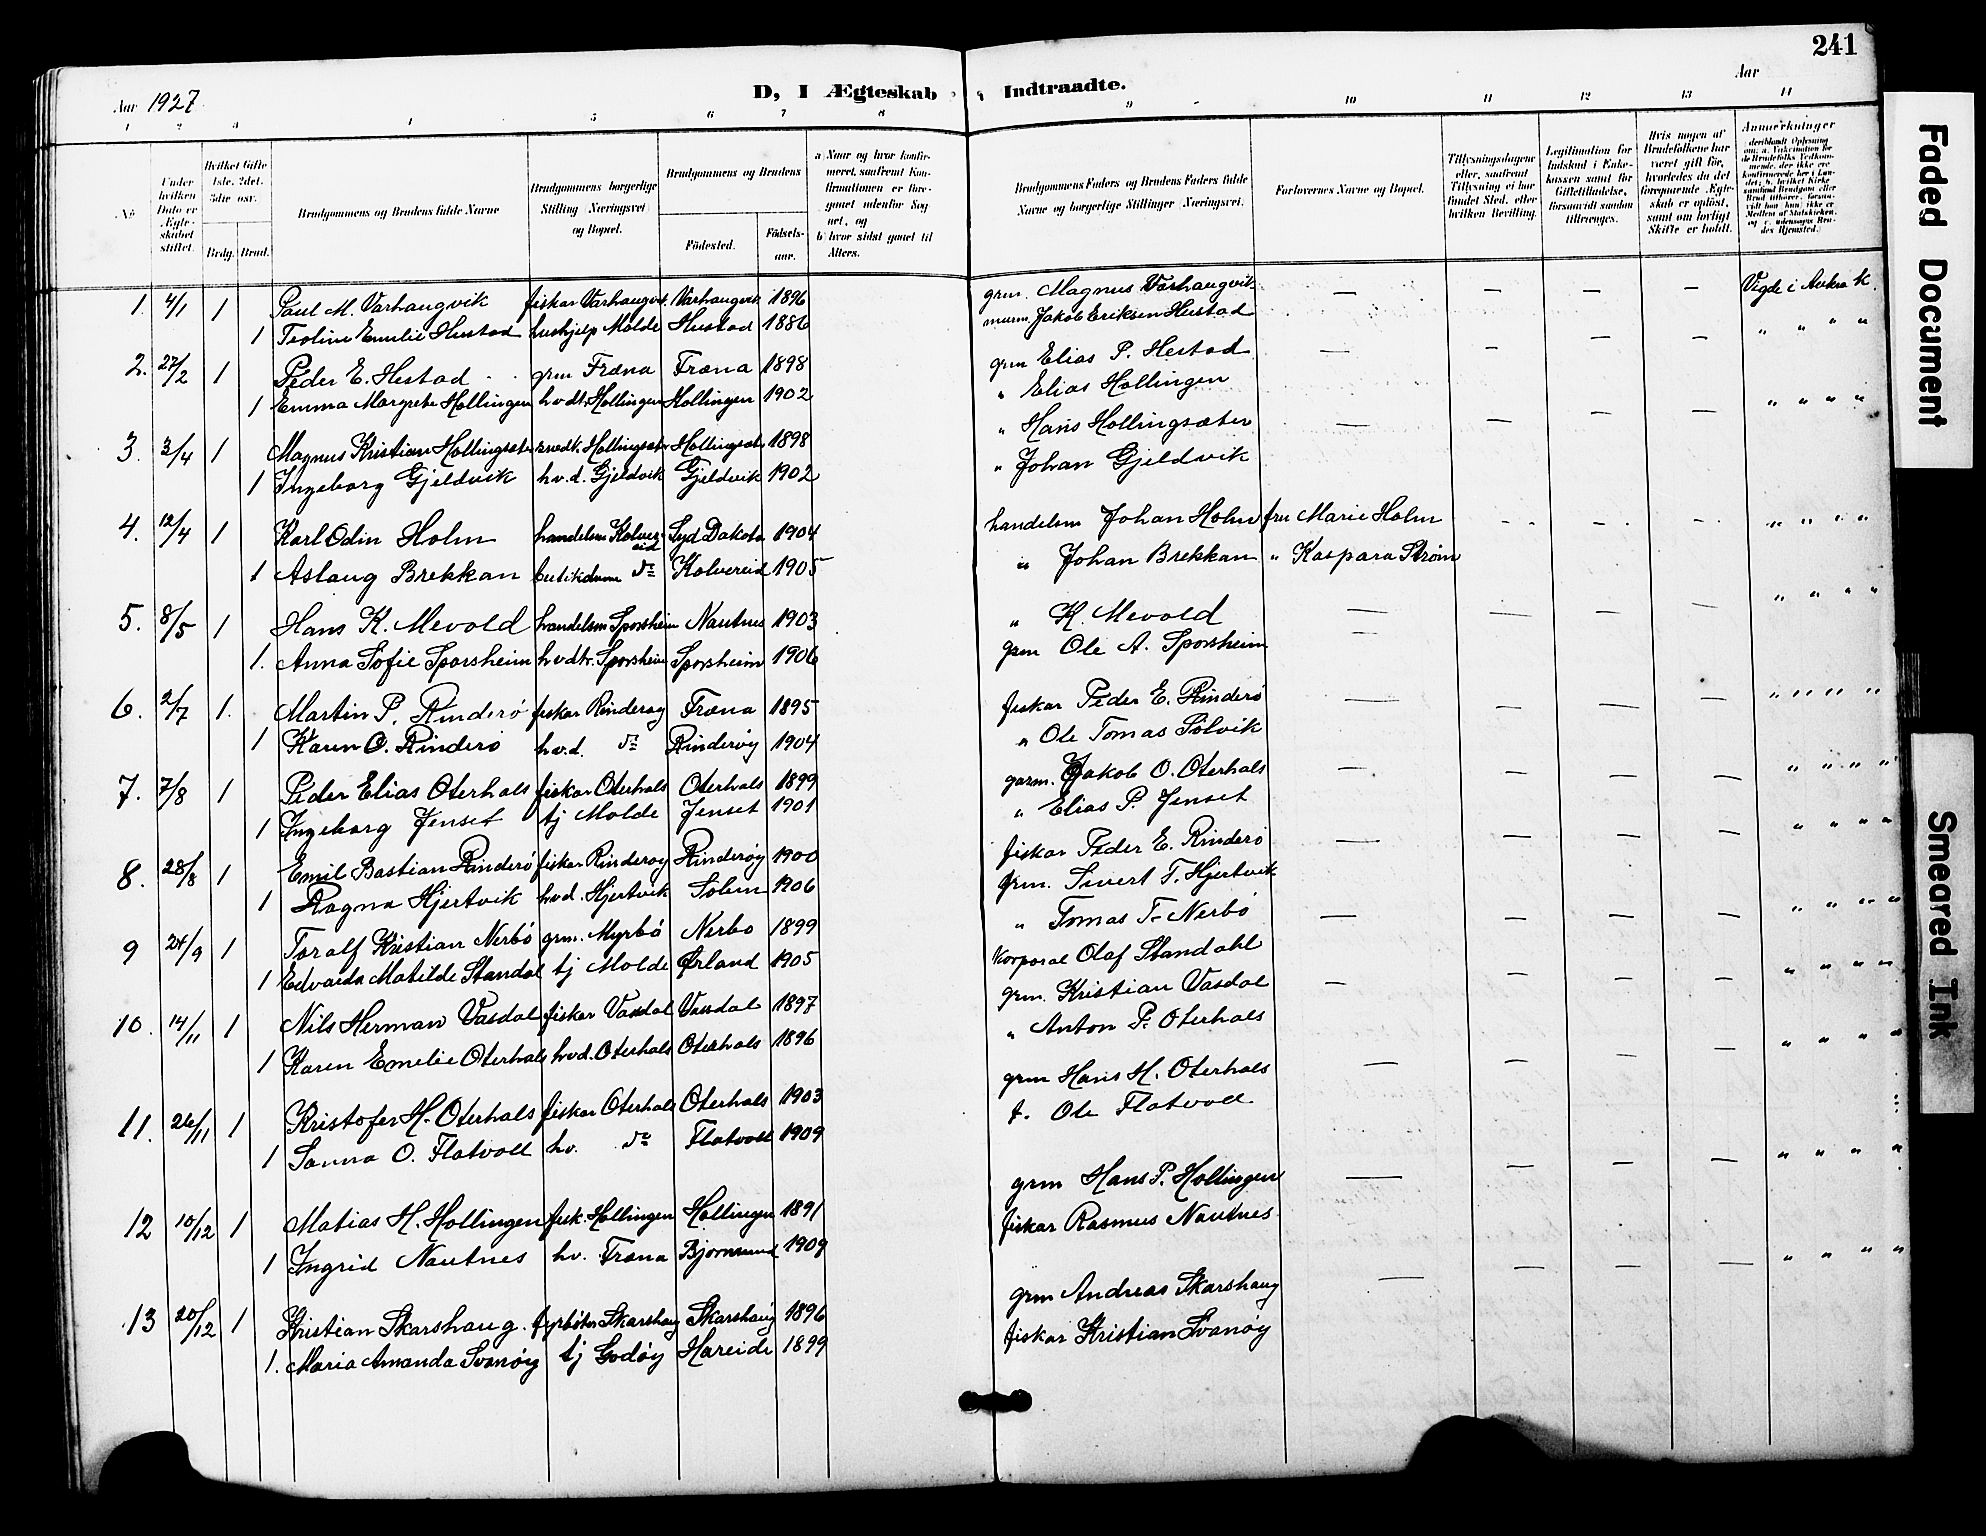 241
Aar 1927.
D, I Ægteskab Indtraadte.
Aar
1 2 3 4 5 6 7 8 9 10 11 12 13 14
No
Under hvilken Dato er Ægteskabet stiftet.
Hvilket Gifte 1ste. 2det. 3die osv.
Brdg. Brud.
Brudgommens og Brudens fulde Navne
Brudgommens borgerlige Stilling (Næringsvei) og Bopæl.
Brudgommens og Brudens
Fødested.
Fødsels-aar.
a Naar og hvor konfirmeret, saafremt Konfirmationen er foregaaet udenfor Sognet, og
b hvor sidst gaaet til Alters.
Brudgommens Faders og Brudens Faders fulde Navne og borgerlige Stillinger (Næringsvei).
Forlovernes Navne og Bopæl.
Tillysningsdagene eller, saafremt Tillysning ei har fundet Sted, efter hvilken Bevilling.
Legitimation for Indskud i Enkekassen samt for Giftetilladelse, forsaavidt saadan tiltrænges.
Hvis nogen af Brudefolkene har været gift før, hvorledes da det foregaaende Ægteskab er opløst, samt om lovligt Skifte er holdt.
Anmerkninger
1. 4/1 1 Paul M. Varhaugvik fiskar Varhaugvk. Varhaugvik 1896 grm. Magnus Varhaugvik — — — — Vigde i Aukra K.
1 Teoline Emelie Hustad hushjelp Molde Hustad 1886 murm. Jakob Eriksen Hustad
2. 27/2 1 Peder E. Hestad grm Fræna Fræna 1898 grm Elias P. Hestad — — — — " " " "
1 Emma Margrete Hollingen hvdtr. Hollingen Hollingen 1902 " Elias Hollingen
3. 3/4 1 Magnus Kristian Hollingsæter Hollingsætr Hollingsæt. 1898 " Hans Hollingsæter — — — — " " " "
1 Ingeborg Gjeldvik hv.d. Gjeldvik Gjeldvik 1902 " Johan Gjeldvik
4. 12/4 1 Karl Odin Holm handelsm Kolvereid Syd Dakota 1904 handelsm Johan Holm fru Marie Holm - - - - " " " "
1 Aslaug Brekkan butikdame do Kolvereid 1905 " Johan Brekkan " Kaspara Strøm
5. 8/5 1 Hans K. Mevold handelsm Sporsheim Nautnes 1903 " K. Mevold — — — — " " " "
1. Anna Sofie Sporsheim hvdtr. Sporsheim Sporsheim 1906 grm Ole A. Sporsheim —
6. 2/7 1. Martin P. Rinderø fiskar Rinderøy Fræna 1895 fiskar Peder E. Rinderø — — — — " " " "
1 Karen O. Rinderø hv.d. do Rinderøy 1904 " Ole Tomas Solvik
7. 7/8 1 Peder Elias Oterhals fiskar Oterhals Oterhals 1899 garm. Jakob O. Oterhals — — — — " " " "
1 Ingeborg Jenset tj Molde Jenset 1901 " Elias P. Jenset
8. 28/8 1 Emil Bastian Rinderø fiskar Rinderøy Rinderøy 1900 fiskar Peder E. Rinderø — — — — " " " "
1 Ragna Hjertvik hvd. Hjertvik 1906 grm. Sivert T. Hjertvik
9 24/9 1 Toralf Kristian Nerbø grm. Myrbø Nerbø 1899 " Tomas T. Nerbø — — — — " " " "
1 Edvarda Matilde Standal tj Molde Ørland 1905 Korporal Olaf Standahl
10. 14/11 1 Nils Herman Vasdal fiskar Vasdal Vasdal 1897 grm. Kristian Vasdal — — — — " " " "
1 Karen Emelie Oterhals hvd. Oterhals Oterhals 1896 " Anton P. Oterhals
11. 26/11 1 Kristofer H. Oterhals fiskar Oterhals Oterhals 1903 grm Hans H. Oterhals — — — — " " " "
1 Sanna O. Flatvoll hv. do Flatvoll 1909 f. Ole Flatvoll
12 10/12 1 Matias H. Hollingen fisk. Hollingen Hollingen 1891 grm Hans P. Hollingen — — — — " " " "
1 Ingrid Nautnes hv. Fræna Bjørnsund 1909 fiskar Rasmus Nautnes
13 20/12 1 Kristian Skarshaug. fyrbøter Skarshaug Skarshaug 1896 grm Andreas Skarshaug — — — — " " " "
1. Maria Amanda Svanøy tj Godøy Hareide 1899 fiskar Kristian Svanøy
Faded Document
Smeared Ink